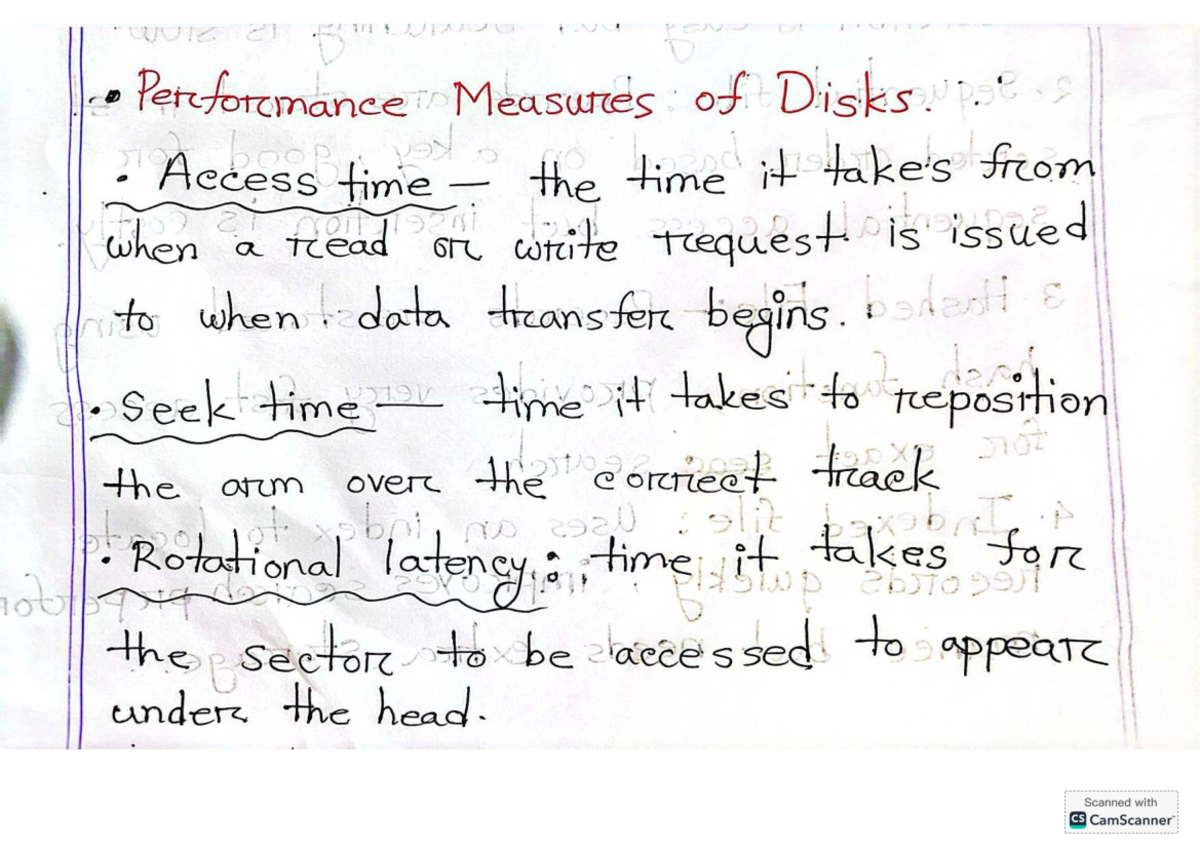 • Performance Measures of Disks.
• Access time — the time it takes from
when a read or write request is issued
to when data transfer begins.
• Seek time — time it takes to reposition
the arm over the correct track
• Rotational latency: time it takes for
the sector to be accessed to appear
under the head.
Scanned with
CS CamScanner